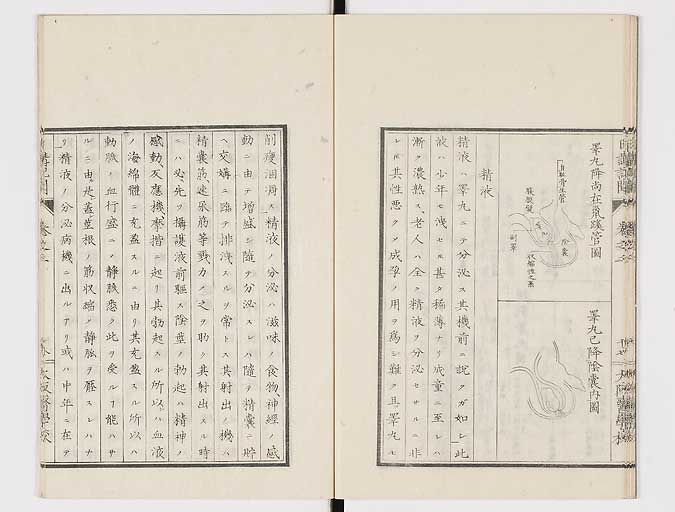 睪丸降尚在飛蹊管圖
睪丸已降陰囊内圖
腹膜襞
陰囊
睪丸
精液
精液ハ睪丸ニテ分泌ス其機前ニ説クガ如シ此
液ハ少年モ洩セニ甚タ稀薄ナリ成童ニ至レハ
漸ク濃熟ス、老人ハ全ク精液ヲ分泌セサルニ非
レ𪜈其性悪クメ成孕ノ用ヲ爲シ難ク且、睪丸モ
削瘦涸凋ス精液ノ分泌ハ滋味ノ食物神經ノ感
動ニ由テ増盛シ隨テ分泌スレハ隨テ精囊ニ貯
ヘ交媾ニ臨テ排洩スルヲ常トス其射出ノ機ハ
精囊筋速尿筋等戮カメ之ヲ助ク其射出スル時
ニハ必、先ツ攝護液前驅ス陰莖ノ勃起ハ精神ノ
感動、反應機、摩揩ニ起リ其勃起スル所以ハ血液
ノ海綿體ニ充盈スルニ由リ其充盈スル所以ハ
動脉ノ血行盛ニメ靜脉悉ク此ヲ受ル了能ハサ
ルニ由ル是、蓋莖根ノ筋收縮メ靜脉ヲ壓スレハナ
リ精液ノ分泌病機ニ出ルアリ或ハ中年ニ在テ
大阪醫學校